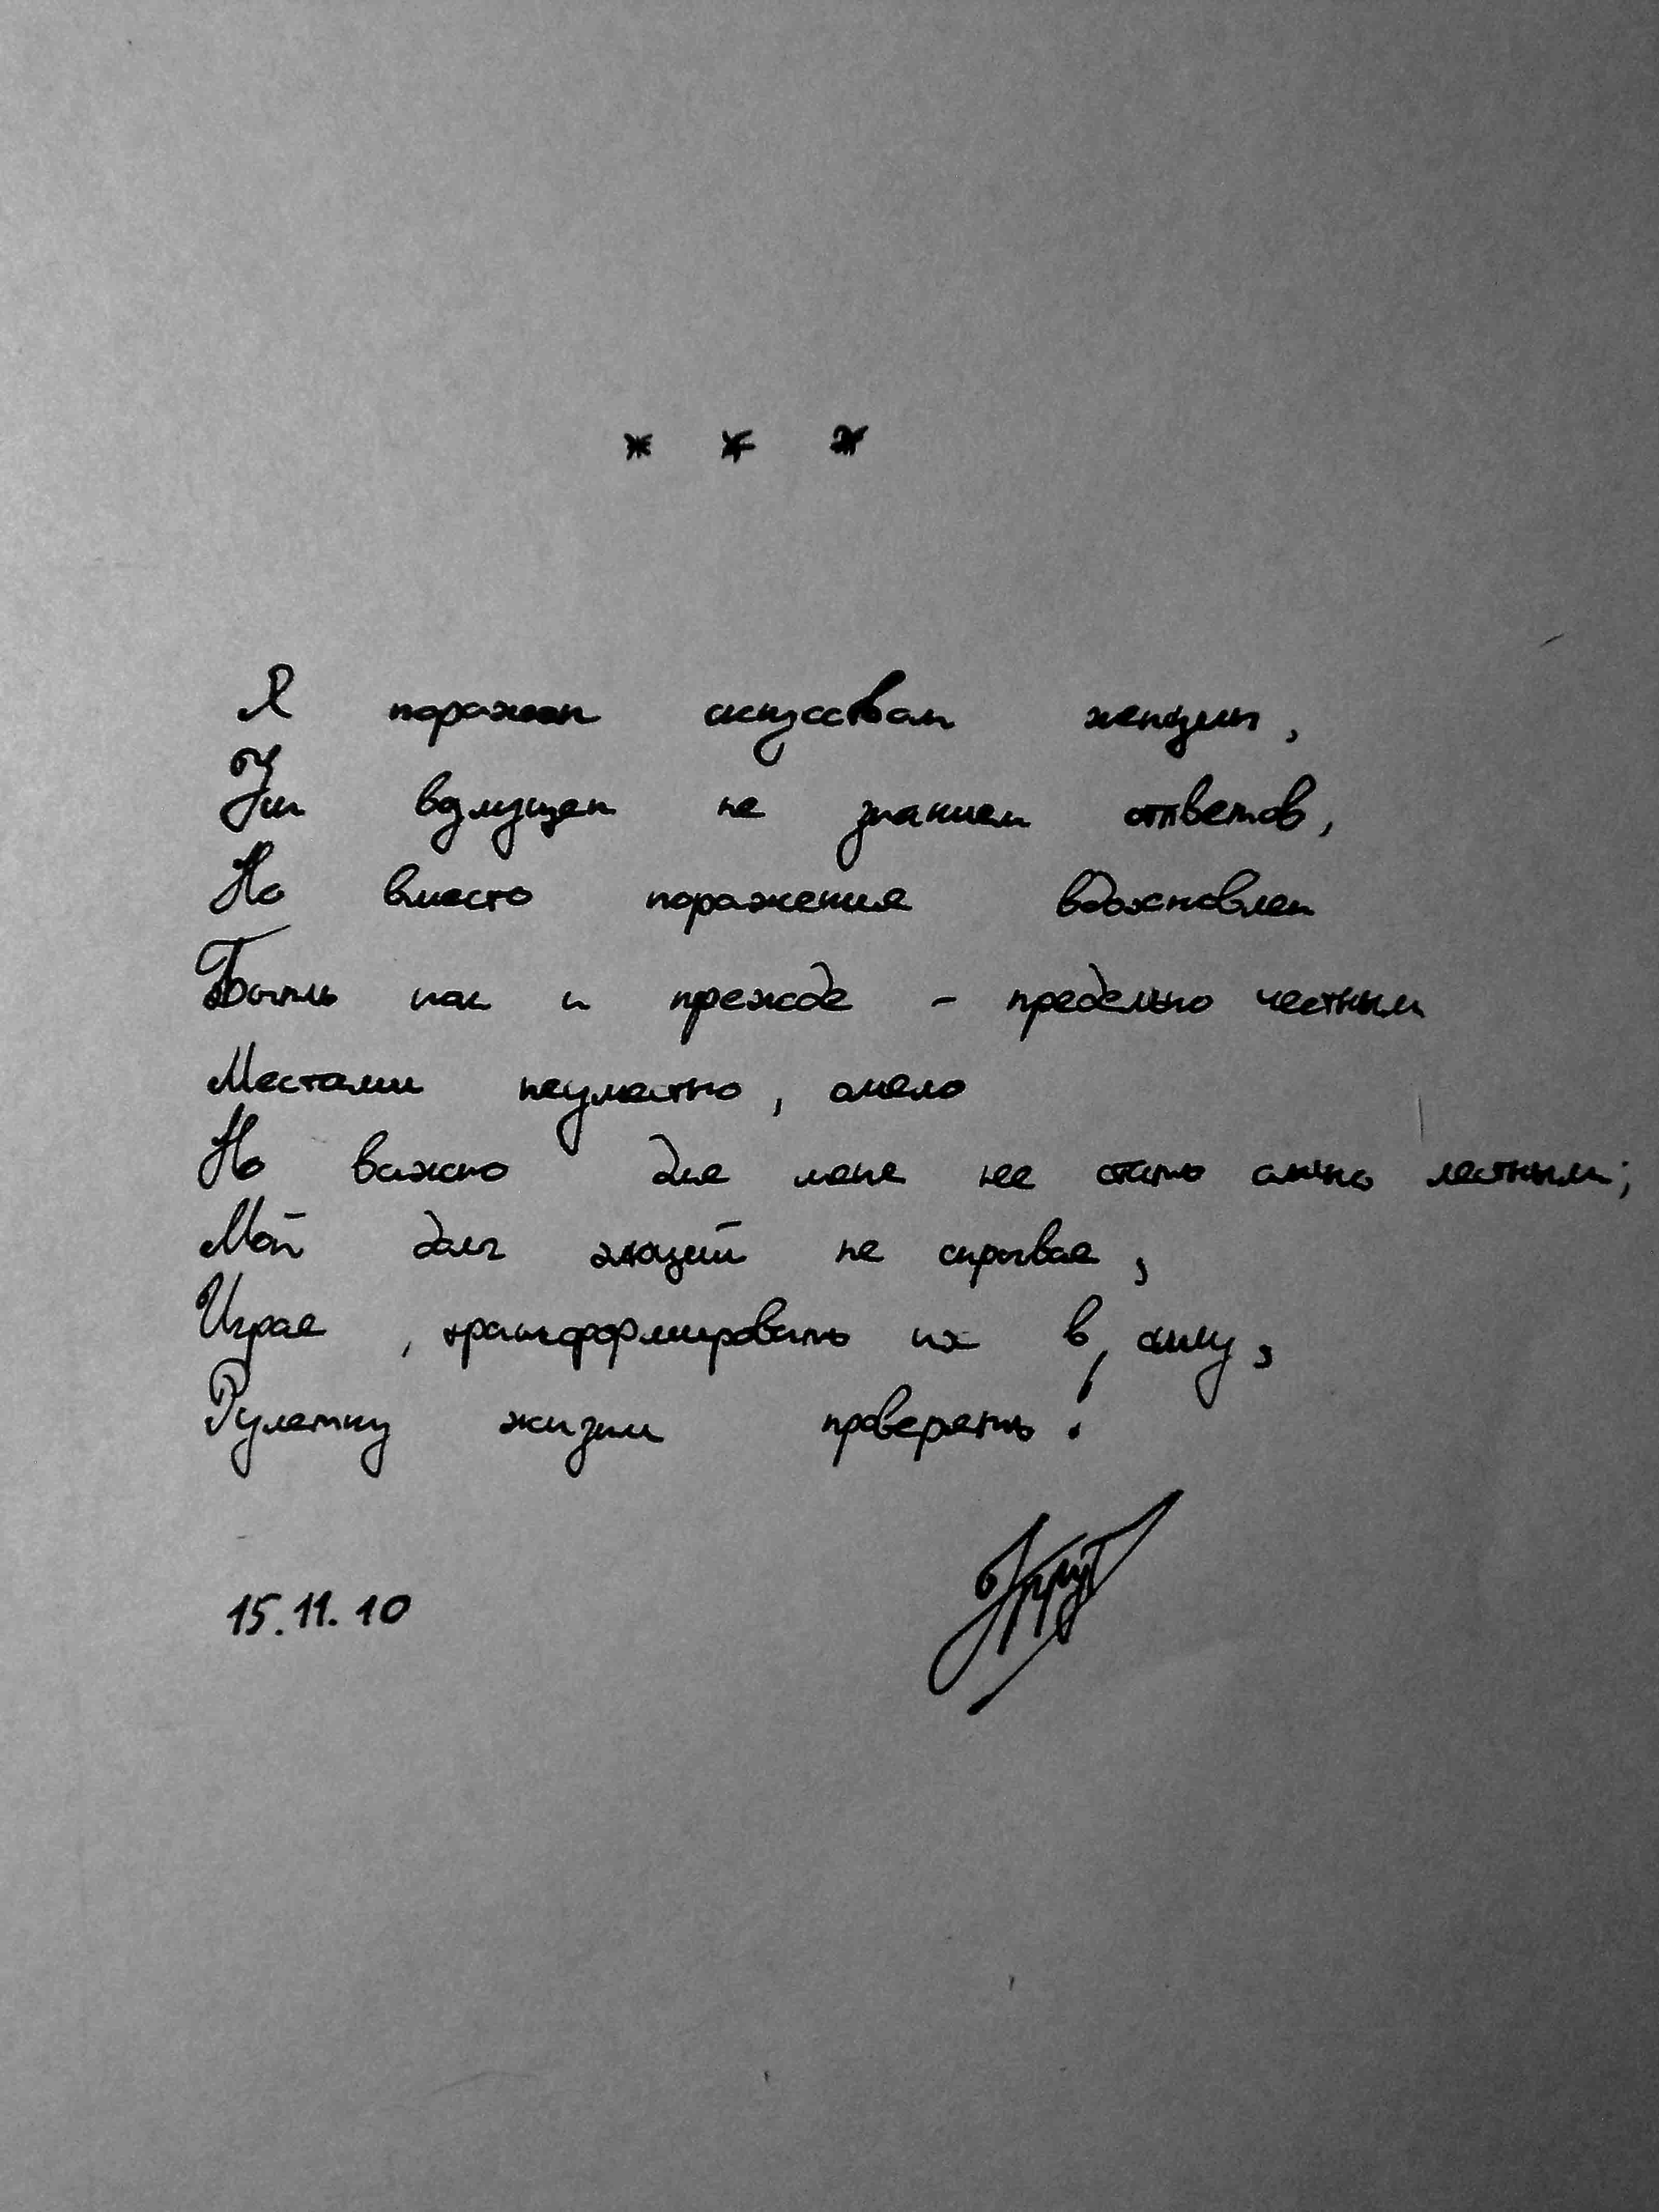 * * *
Я поражен искусством женщин,
Им не знанием ответов,
Но вместо поражения вдохновлен
Быть как и прежде - предельно честным
Местами неуместно, смело
Но важно для меня не стать лестным;
Мой долг эмоций не скрывая,
Играя, трансформировать их в силу,
Рулетку жизни проверять!
15.11.10